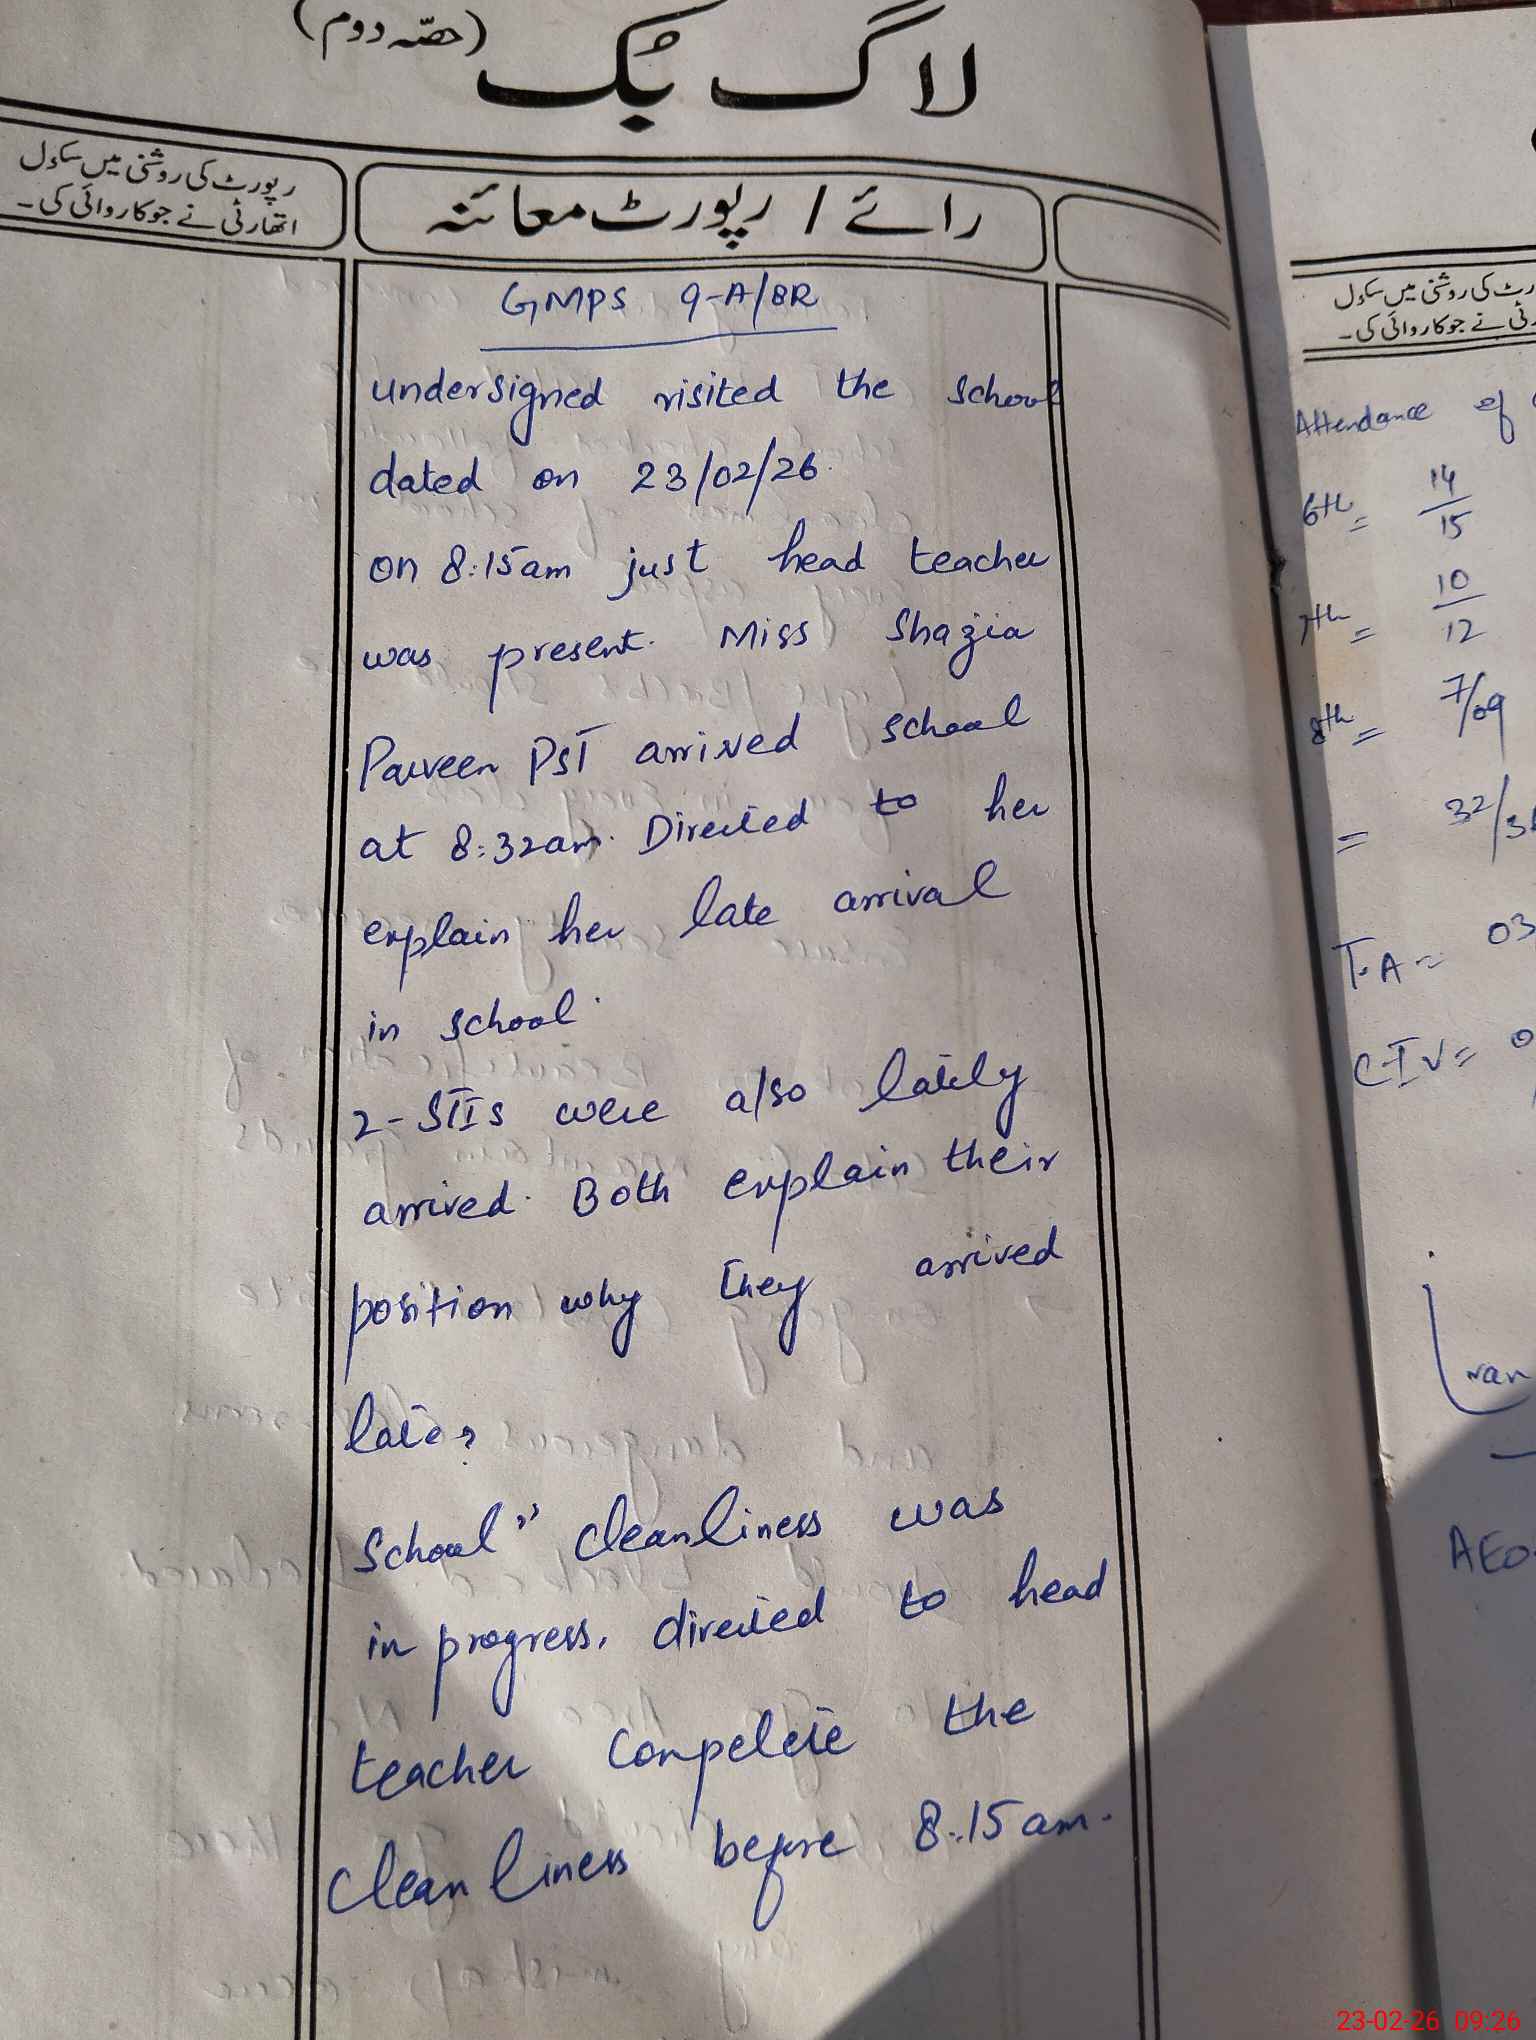 لاگ بُک (حصّہ دوم)
رپورٹ کی روشنی میں سکول
اتھارٹی نے جو کاروائی کی۔
رائے / رپورٹ معائنہ
GMPS 9-A/8R
undersigned visited the school
dated on 23/02/26.
on 8:15am just head teacher
was present. Miss Shazia
Parveen PST arrived school
at 8:32am. Directed to her
explain her late arrival
in school.
2- STIs were also lately
arrived. Both explain their
position why they arrived
late?
School" cleanliness was
in progress. directed to head
teacher compelete the
cleanliness before 8:15am.
رٹ کی روشنی میں سکول
ٹی نے جو کاروائی کی۔
Attendance of
6th = 14/15
7th = 10/12
8th = 7/09
= 32/3
T.A = 03
C-IV =
AEO
23-02-26 09:26